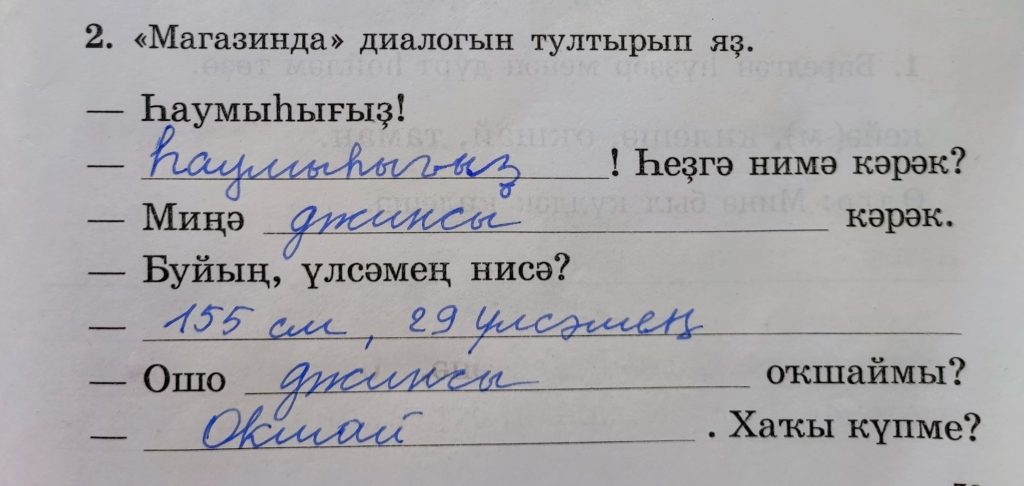 2. «Магазинда» диалогын тултырып яҙ.
— Һаумыһығыҙ!
— Һаумыһығыҙ! Һеҙгә нимә кәрәк?
— Миңә джинсы кәрәк.
— Буйың, үлсәмең нисә?
— 155 см, 29 үлсәмең
— Ошо джинсы оҡшаймы?
— Окшай. Хаҡы күпме?